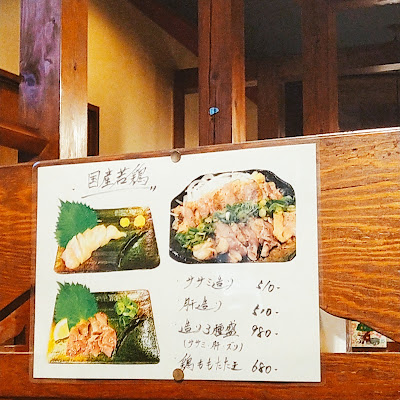 国産若鶏
・ササミ造り 510-
・肝造り 510-
・造り3種盛 980-
(ササミ 肝 ズリ)
・鶏ももたたき 680-